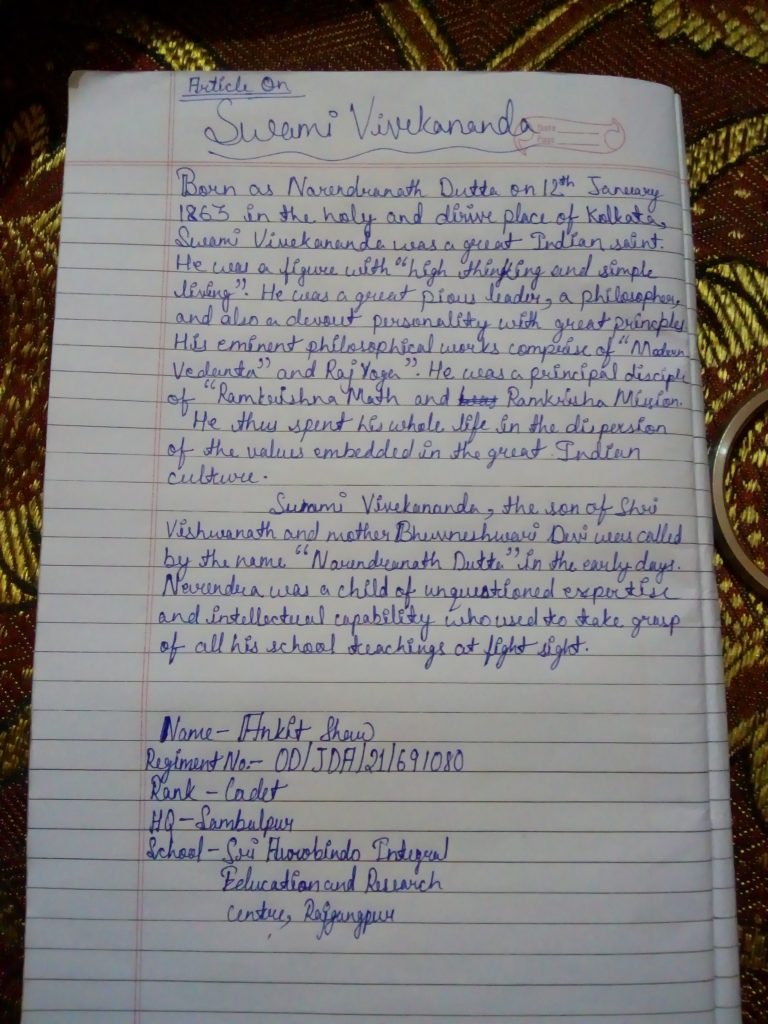 Article On
Swami Vivekananda
Date
Page
Born as Narendranath Dutta on 12th January
1863 in the holy and divive place of Kolkata,
Swami Vivekananda was a great Indian saint.
He was a figure with "high thinking and simple
living". He was a great pious leader, a philosopher,
and also a devout personality with great principles
His eminent philosophical works comprise of "Modern
Vedanta" and Raj Yoga". He was a principal disciple
of "Ramkrishna Math and Ramkrisha Mission.
He thus spent his whole life in the dispersion
of the values embedded in the great Indian
culture.
Swami Vivekananda, the son of Shri
Vishwanath and mother Bhuvneshwari Devi was called
by the name "Narendranath Dutta" in the early days.
Narendra was a child of unquestioned expertise
and intellectual capability who used to take grasp
of all his school teachings at fight sight.
Name - Ankit Shaw
Regiment No.- OD/JDA/21/691080
Rank - Cadet
HQ - Sambalpur
School - Sri Aurobindo Integral
Education and Research
centre, Rajgangpur